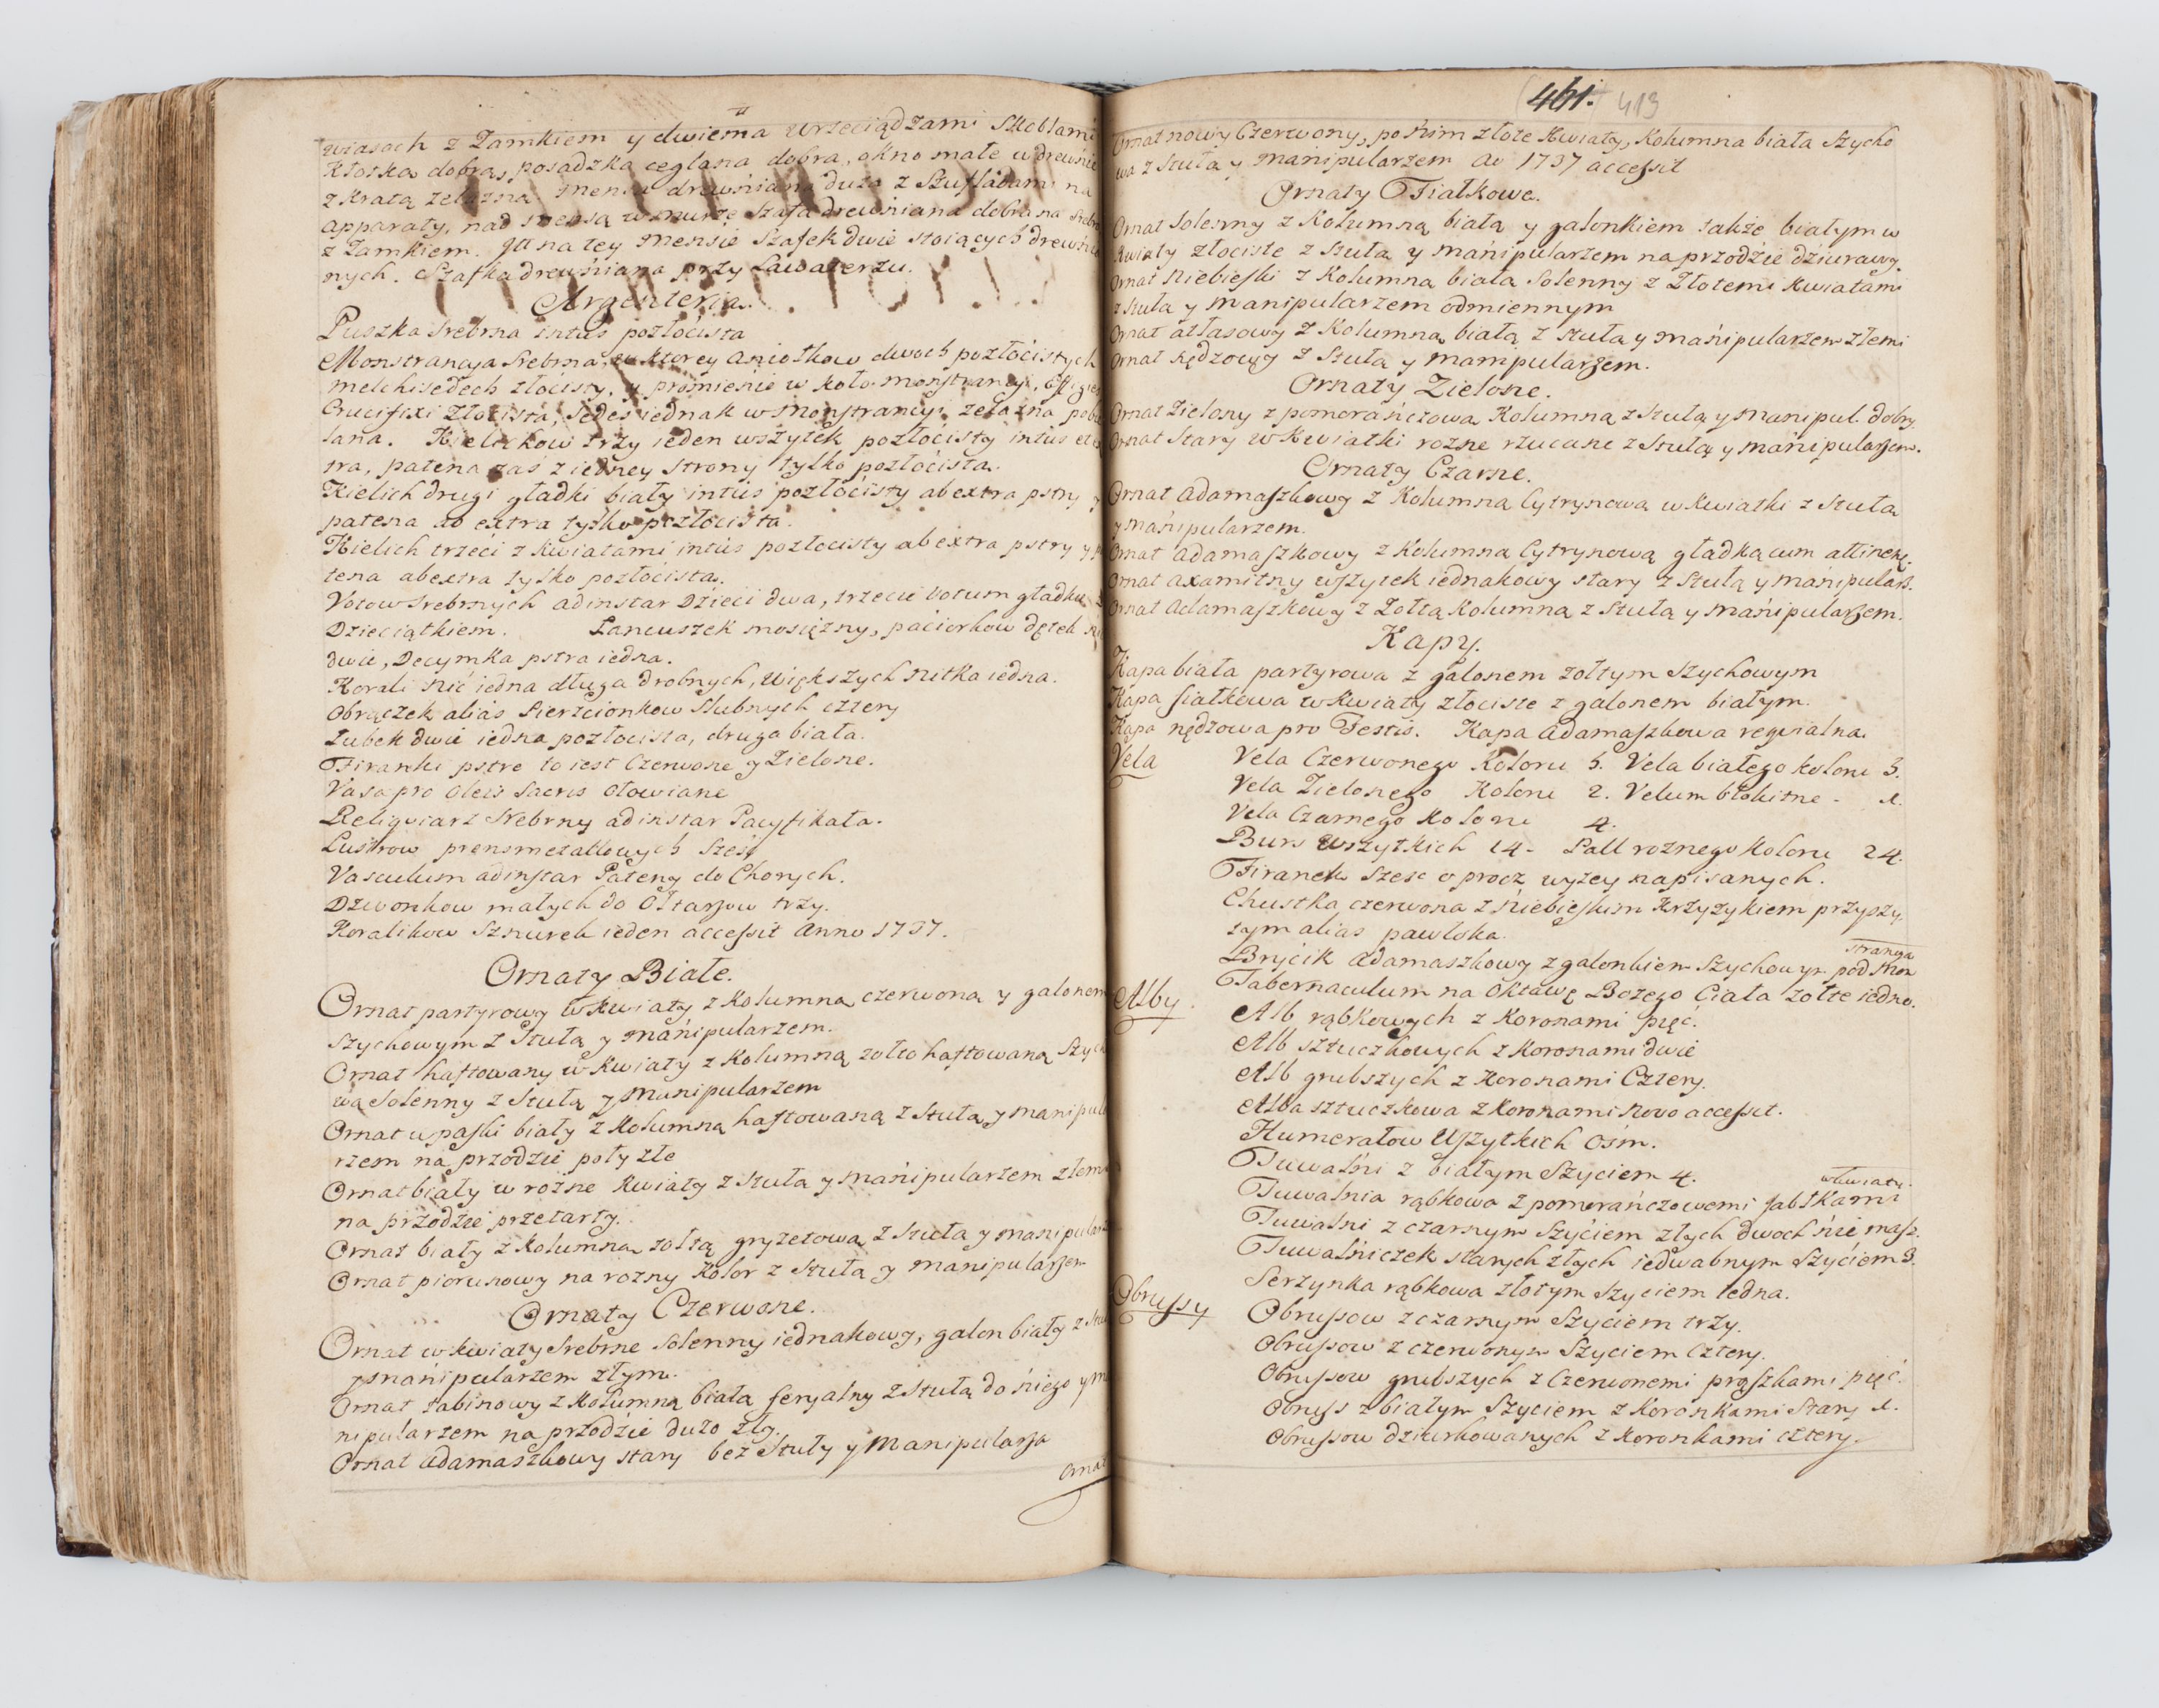 wiasach z Zamkiem y dwiema wrzeciądzami Skoblami
Kłotka dobra, posadzka ceglana dobra, okno małe w drewnie
z Kratą zelazną mensa drewniana duza z Szufladami na
apparaty, nad mensą w murze szafa drewniana dobra na srebro
z Zamkiem. Jtt na tey mensie Szafek dwie stoiących drewnia
nych. Szafka drewniana przy Lawaterzu.
Argenteria.
Puszka srebrna intus pozłocista
Monstrancya Srebrna, w ktorey Aniołkow dwoch pozłocistych
melchisedech złocisty, y promienie w koło monstrancyi, Effigies
Crucifixi Złocista, sedes iednak w monstrancyi zelazna pobie
lana. Kielichow trzy ieden wszytek pozłocisty intus et ex
tra, patena zas z iedney strony tylko pozłocista.
Kielich drugi gładki biały intus pozłocisty ab extra pstry y
patena ab extra tylko pozłocista.
Kielich trzeci z kwiatami intus pozłocisty ab extra pstry y pa
tena ab extra tylko pozłocista.
Votow srebrnych ad instar Dzieci dwa, trzecie votum gładkie z
Dzieciątkiem. Łancuszek mosiężny, paciorkow dętek
dwie, Decymka pstra iedna.
Korali nić iedna długa drobnych, Większych nitka iedna.
Obrączek alias Sierscionkow Slubnych cztery
Łubek dwie iedna pozłocista, druga biała.
Firanki pstre to iest Czerwone y Zielone.
Vasa pro Oleis Sacris Ołowiane
Reliqwiarz Srebrny ad instar Pacyfikała.
Lustrow prensmetallowych Sześć
Vasculum ad instar Pateny do Chorych.
Dzwonkow małych do Ołtarzow trzy.
Koralikow Sznurek ieden accessit Anno 1737.
Ornaty Białe.
Ornat partyrowy w kwiaty z Kolumna czerwoną y galonem
Szychowym z Stułą y manipularzem.
Ornat haftowany w kwiaty z Kolumną zołto haftowaną Szycho
wą Solenny z Stułą y manipularzem
Ornat w paski biały z Kolumną haftowaną z Stułą y manipula
rzem na przodzie poły złe
Ornat biały w rozne kwiaty z Stułą y manipularzem złemi
na przodzie przetarty.
Ornat biały z Kolumną zołtą gryzetową z Stuła y manipularz
Ornat piorunowy na rozny Kolor z Stułą y manipularzem
Ornaty Czerwone.
Ornat w kwiaty Srebrne Solenny iednakowy, galon biały z Stuł
y manipularzem złym.
Ornat tabinowy z Kolumną białą feryalny z Stułą do niego y ma
nipularzem na przodzie duzo zły.
Ornat adamaszkowy stary bez Stuły y Manipularza
Ornat
461. 413
Ornat nowy Czerwony, po nim złote Kwiaty, Kolumna biała Szycho
wa z Stułą y manipularzem Ao 1737 accessit
Ornaty Fiałkowe.
Ornat Solenny z Kolumną białą y galonkiem także białym w
Kwiaty złociste z Stułą y manipularzem na przodzie dziurawy.
Ornat Niebieski z Kolumna biała Solenny z Złotemi Kwiatami
z Stuła y Manipularzem odmiennym
Ornat atłasowy z Kolumną białą z Stułą y manipularzem złemi
Ornat Nędzowy z Stułą y manipularzem.
Ornaty Zielone.
Ornat Zielony z pomarańczowa Kolumną z Stułą y manipul. dobry
Ornat Stary w Kwiatki rozne rzucane z Stułą y manipularzem.
Ornaty Czarne.
Ornat Adamaszkowy z Kolumną Cytrynową w Kwiatki z Stułą
y manipularzem.
Ornat Adamaszkowy z Kolumną Cytrynową gładką cum attinen.
Ornat Axamitny wszytek iednakowy stary z Stułą y manipularz.
Ornat Adamaszkowy z Zołtą Kolumną z Stułą y manipularzem.
Kapy.
Kapa biała partyrowa z galonem zołtym Szychowym
Kapa fiałkowa w Kwiaty złociste z galonem białym.
Kapa nędzowa pro Festis. Kapa Adamaszkowa reqwialna.
Vela Vela Czerwonego Koloru 5. Vela białego koloru 3.
Vela Zielonego Koloru 2. Velum błękitne - 1.
Vela Czarnego Koloru 4.
Burs wszytkich 14 - Pall roznego Koloru 24.
Firanek Szesc oprocz wyzey napisanych.
Chustka czerwona z Niebieskim Krzyżykiem przyszy
tym alias pawloka.
strancya
Bryćik Adamaszkowy z galonkiem Szychowym pod Mon
Tabernaculum na Oktawę Bozego Ciała zołte iedno.
Alby. Alb rąbkowych z Koronami pięć.
Alb sztuczkowych z Koronami dwie
Alb grubszych z Koronami Cztery.
Alba sztuczkowa z Koronami Novo accessit.
Humerałow Wszytkich osm.
Tuwalni z białym Szyciem 4.
w kwiaty.
Tuwalnia rąbkowa z pomarańczowemi Jabłkami
Tuwalni z czarnym Szyciem złych dwoch nie masz.
Tuwalniczek starych złych iedwabnym Szyciem 3.
Serzynka rąbkowa złotym Szyciem iedna.
Obrussy Obrussow z czarnym Szyciem trzy.
Obrussow z czerwonym Szyciem Cztery.
Obrussow grubszych z Czerwonemi prążkami pięć.
Obruss z białym Szyciem z Koronkami Stary 1.
Obrussow dziurkowanych z Koronkami cztery.